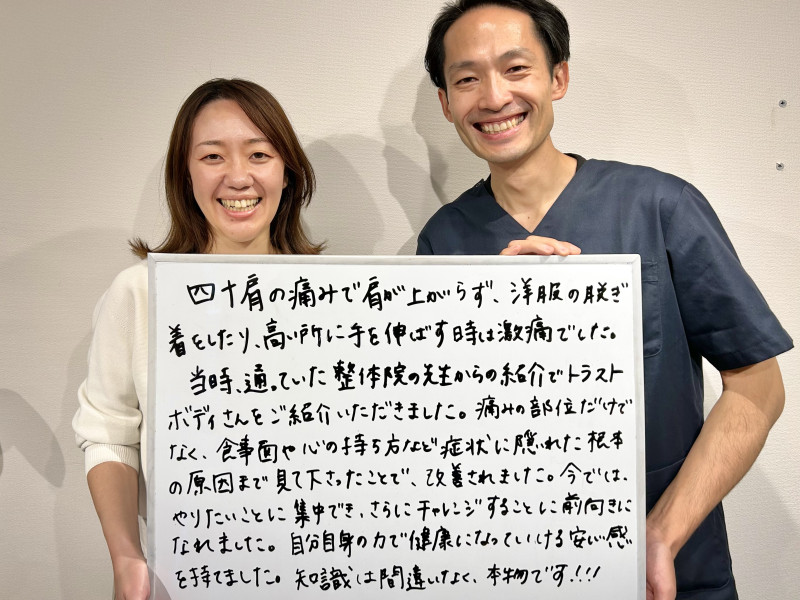 四十肩の痛みで肩が上がらず、洋服の脱ぎ
着をしたり、高い所に手を伸ばす時は激痛でした。
当時、通っていた整体院の先生からの紹介でトラスト
ボディさんをご紹介いただきました。痛みの部位だけで
なく、食事面や心の持ち方など症状に隠れた根本
の原因まで見て下さったことで、改善されました。今では、
やりたいことに集中でき、さらにチャレンジすることに前向きに
なれました。自分自身の力で健康になっていける安心感
を持てました。知識は間違いなく、本物です!!!